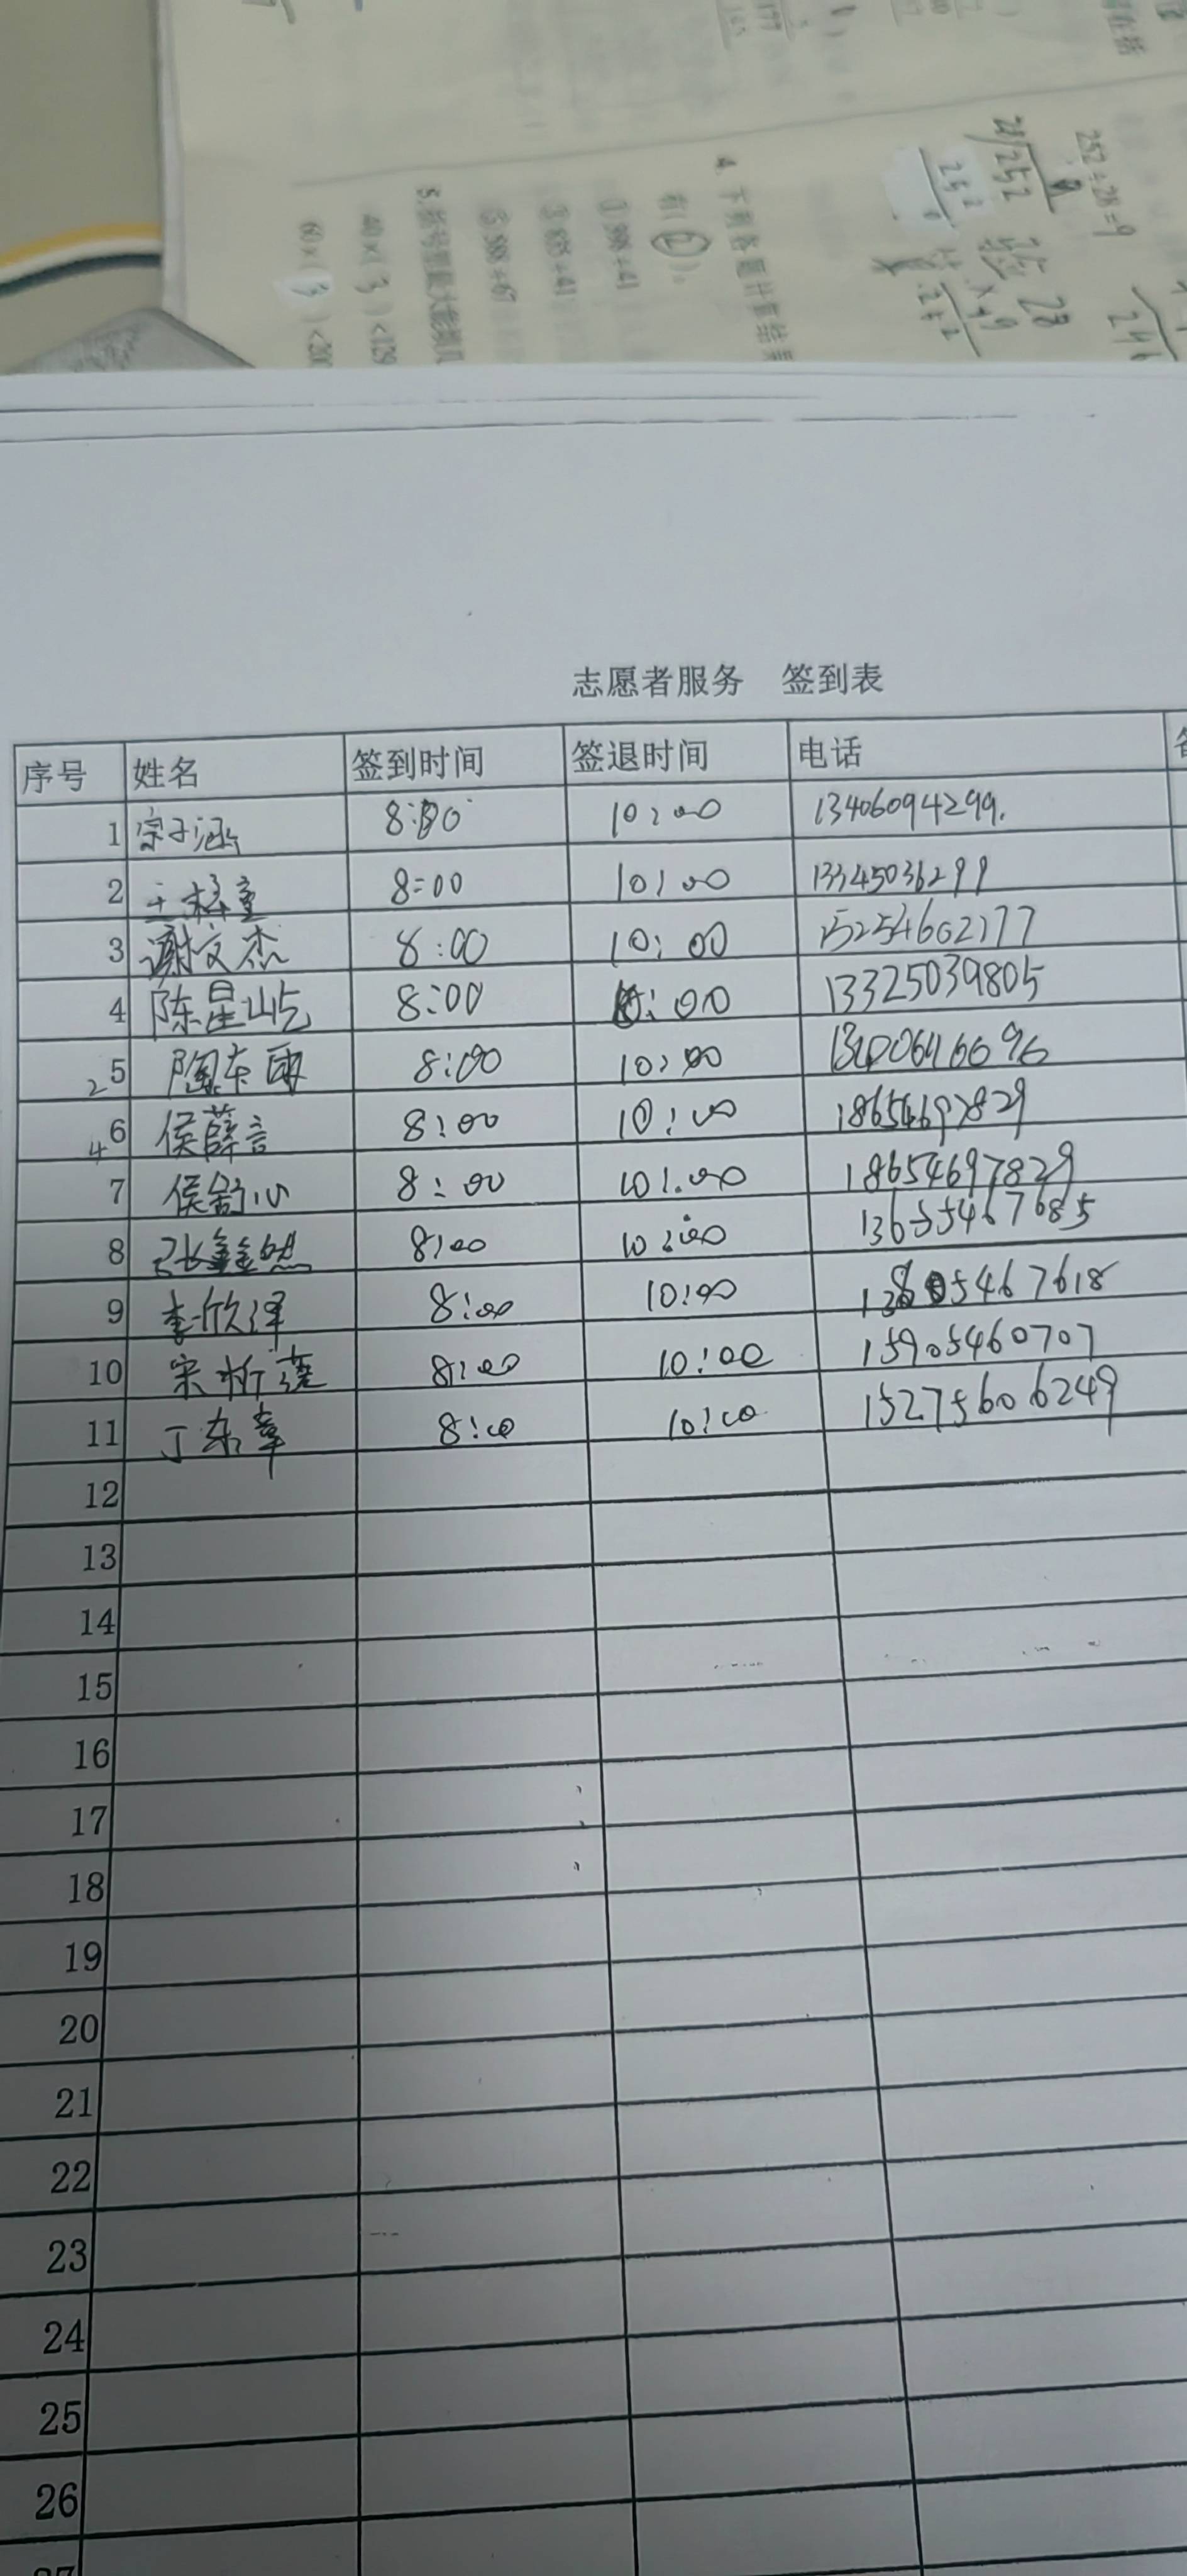 4. 下列各题计算结果
有( ② )。
① 398÷41
252÷28=9
志愿者服务 签到表
序号 姓名 签到时间 签退时间 电话
1 宗子涵 8:00 10:00 13406094299.
2 王梓童 8:00 10:00 13345036299
3 谢文杰 8:00 10:00 15254602177
4 陈星屹 8:00 10:00 13325039805
5 陶东雨 8:00 10:00
6 侯薛言 8:00 10:00 18654697829
7 侯舒心 8:00 10:00 18654697829
8 张鑫然 8:00 10:00 13655467685
9 李欣泽 8:00 10:00
10 宋 8:00 10:00 15905460707
11 丁东 8:00 10:00 15275606249
12
13
14
15
16
17
18
19
20
21
22
23
24
25
26
27